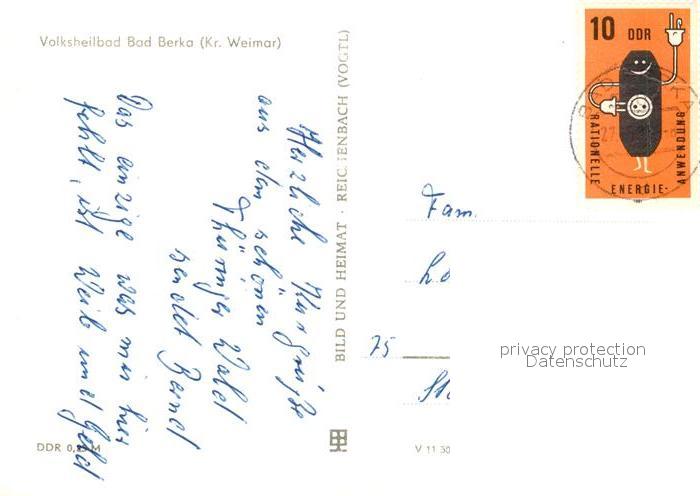 Volksheilbad Bad Berka (Kr. Weimar)
Herzliche Kurgrüße
aus dem schönen
Thüringer Wald
sendet Bernd
Das einzige was mir hier
fehlt, ist Weib und Geld
DDR 0,25 M
BILD UND HEIMAT · REICHENBACH (VOGTL)
V 11 30
10 DDR
RATIONELLE ENERGIE-ANWENDUNG
1981
Fam.
75
privacy protection
Datenschutz